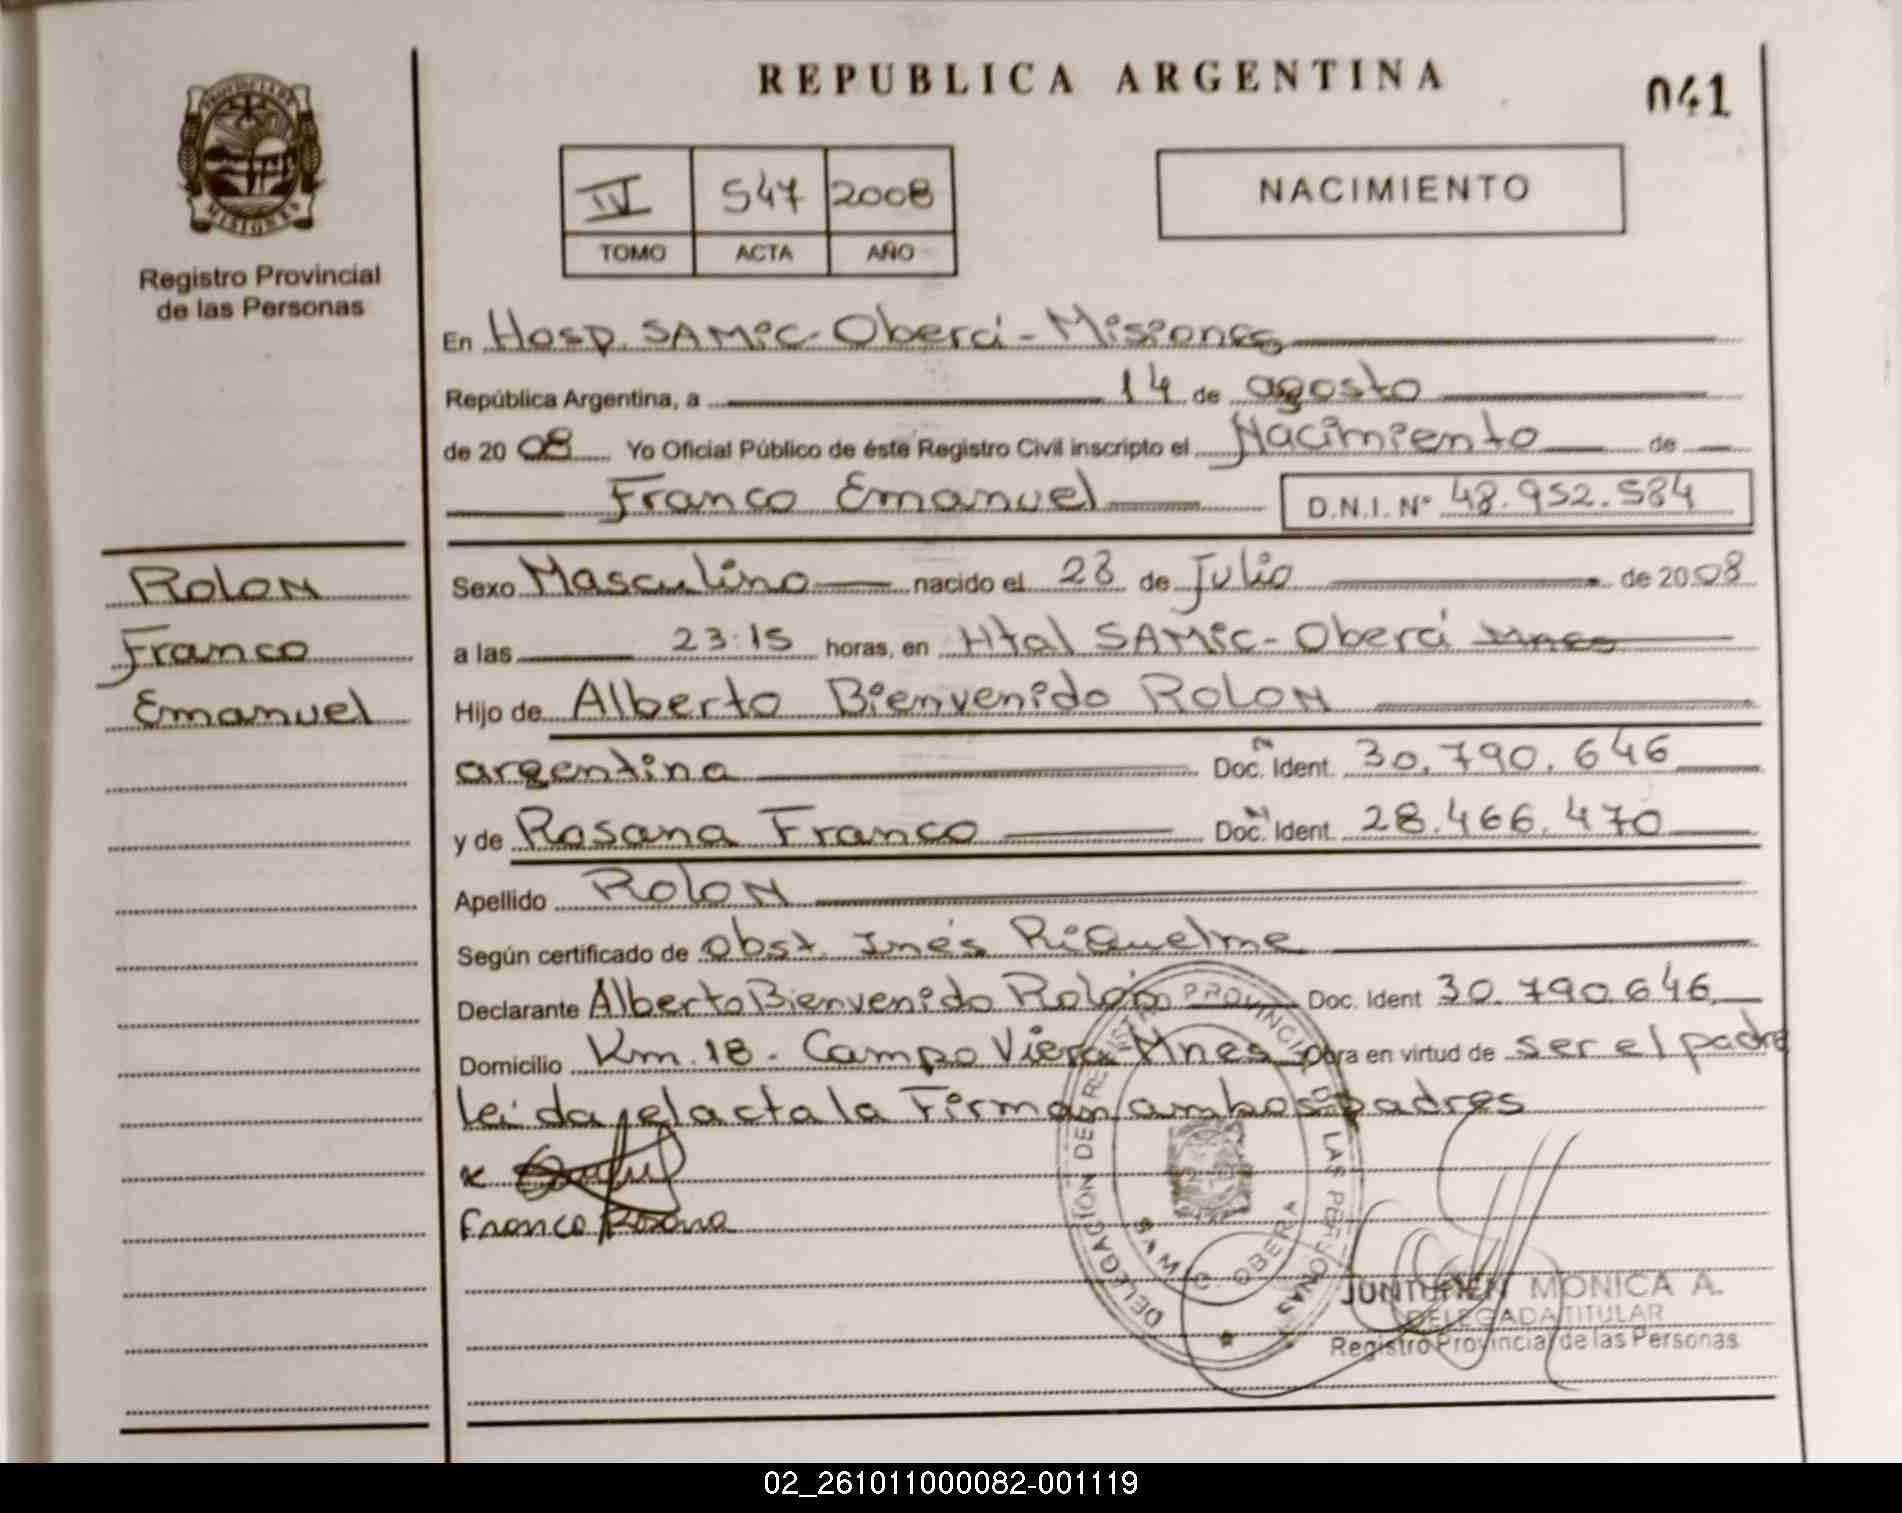 REPUBLICA ARGENTINA
041
PROVINCIA DE
MISIONES
Registro Provincial
de las Personas
IV 547 2008
TOMO ACTA AÑO
NACIMIENTO
En Hosp. SAMiC - Oberá - Misiones
República Argentina, a 14 de agosto
de 20 08 Yo Oficial Público de éste Registro Civil inscripto el Nacimiento de
Franco Emanuel D.N.I. Nº 48.952.584
Rolon
Franco
Emanuel
Sexo Masculino nacido el 28 de Julio de 2008
a las 23:15 horas, en Htal SAMiC - Oberá Mnes
Hijo de Alberto Bienvenido Rolon
argentina Doc. Ident. 30.790.646
y de Rosana Franco Doc. Ident. 28.466.470
Apellido Rolon
Según certificado de Obst. Inés Riquelme
Declarante Alberto Bienvenido Rolón Doc. Ident 30.790.646
Domicilio Km. 18 - Campo Viera - Mnes obra en virtud de ser el padre
leida el acta la Firman ambos padres
Franco Rosana
DELEGACIÓN DEL REGISTRO PROVINCIAL DE LAS PERSONAS
OBERA
JUNTUNEN MONICA A.
DELEGADA TITULAR
Registro Provincial de las Personas
02_261011000082-001119